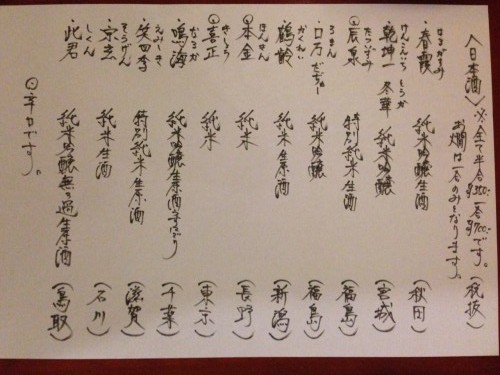 〈日本酒〉※全て半合¥350-
一合¥700-です。(税抜)
お燗は一合のみとなります。
・春霞 純米吟醸生酒 (秋田)
はるがすみ
・乾坤一 冬華 純米吟醸 (宮城)
けんこんいち とうか
⦿辰泉 特別純米生原酒 (福島)
たついずみ
・ロ万 純米吟醸 (福島)
ろまん
・鶴齢 純米生原酒 (新潟)
かくれい
⦿本金 純米 (長野)
ほんきん
⦿喜正 純米 (東京)
きしょう
・鳴海 純米吟醸生原酒 (千葉)
なるか
・笑四季 特別純米生原酒 (滋賀)
えみしき
・宗玄 純米生酒 (石川)
そうげん
・此君 純米吟醸無ろ過生原酒 (鳥取)
しくん
⦿辛口です。